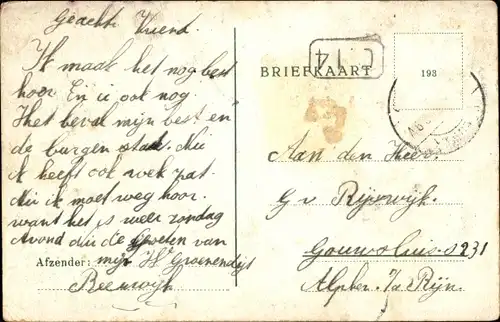 Geachte Vriend.
Ik maak het nog best
hoor En u ook nog
Het beval mijn best en
de burgen Nu
ik heeft ook wek pat
du ik moet weg hoor
want het is weer zondag
Avond dü de Groeten van
Afzender: mijn H Groenendijk
Reeuwijk
C 14
BRIEFKAART
193
Aan den Heer
G v Rijswijk
231
Alphen a/d Rijn